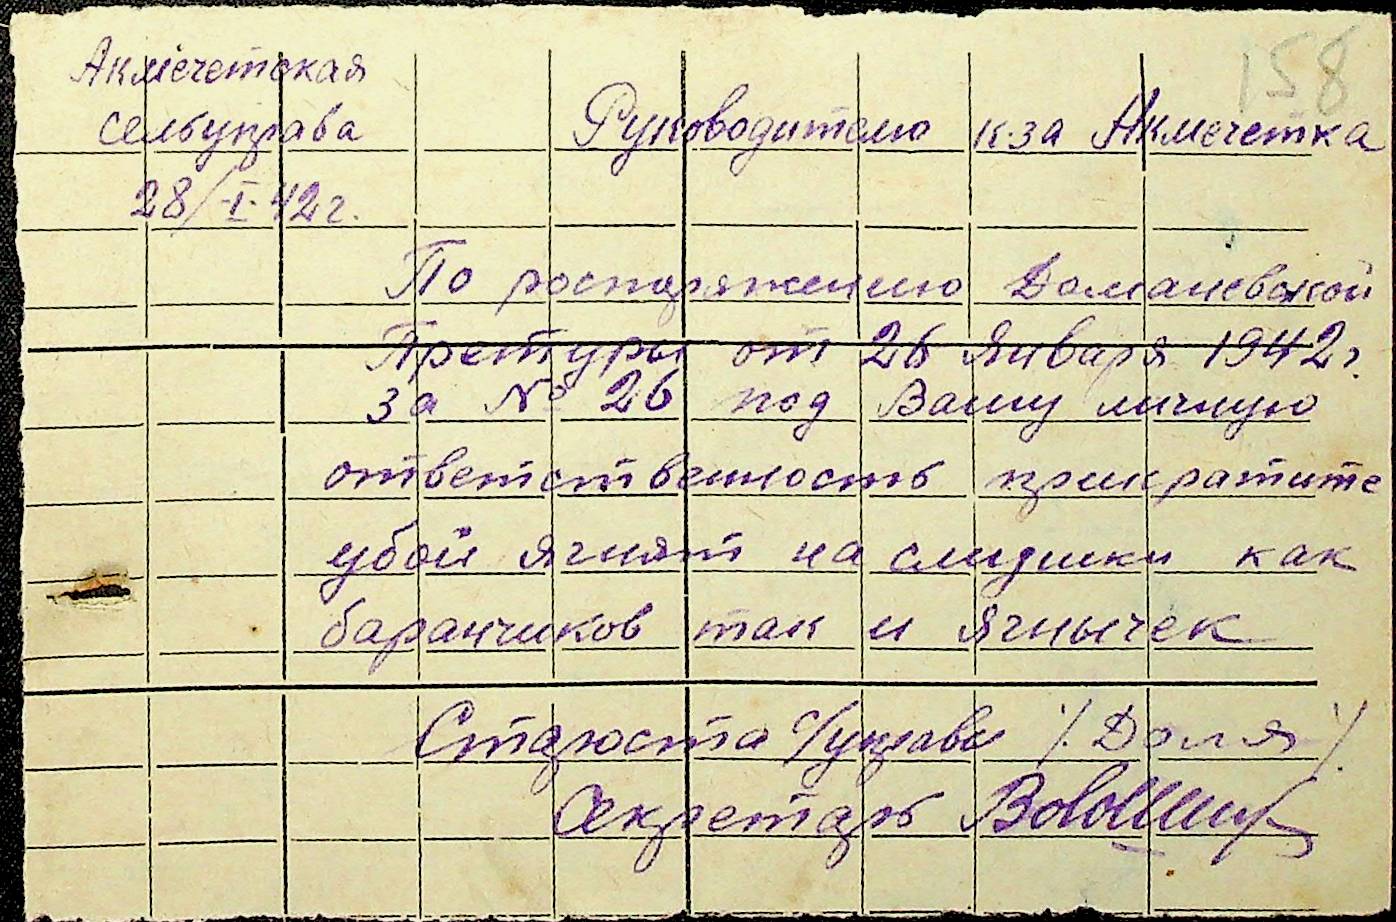 158
Акмечетская
сельуправа
28/-I-42 г.
Руководителю к-за Акмечетка
По роспоряжению Доманевской
Претуры от 26 Января 1942 г.
за № 26 под Вашу личную
ответственность прекратите
убой ягнят на смушки как
баранчиков так и ягнычек
Староста с/управы /. Доля /.
Секретарь